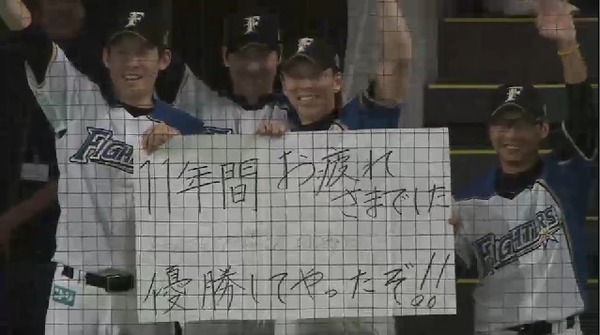 F
F
F
F
FIGHTERS
FIGHTERS
11年間 お疲れ
さまでした
優勝してやったぞ!!